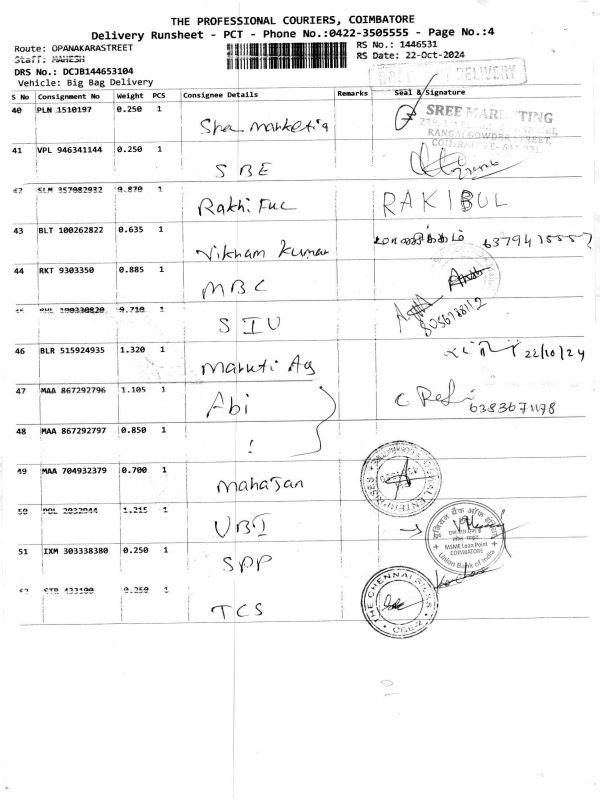 THE PROFESSIONAL COURIERS, COIMBATORE
Delivery Runsheet - PCT - Phone No.:0422-3505555 - Page No.:4
Route: OPANAKARASTREET
RS No.: 1446531
Staff: MAHESH
RS Date: 22-Oct-2024
DRS No.: DCJB144653104
Vehicle: Big Bag Delivery
DELIVERY
S No Consignment No Weight PCS Consignee Details Remarks Seal & Signature
40 PLN 1510197 0.250 1 Shree Marketing
SREE MARKETING
RANGAI GOWDER STREET,
41 VPL 946341144 0.250 1 SBE
42 SLM 357982932 0.870 1 Rakhi Fuc RAKIBUL
43 BLT 100262822 0.635 1 Vikham Kumar
44 RKT 9303350 0.885 1 MBC
45 100330820 0.710 1 SIU 8056728112
46 BLR 515924935 1.320 1 Maruti Ag 22/10/24
47 MAA 867292796 1.105 1 Abi 6383671178
48 MAA 867292797 0.850 1
49 MAA 704932379 0.700 1 Mahajan
50 POL 2032044 1.215 1 UBI
यूनियन बैंक ऑफ इंडिया
MSME Loan Point
COIMBATORE
Union Bank of India
51 IXM 303338380 0.250 1 SPP
52 STR 433100 0.250 1 TCS
THE CHENNAI SILKS
CBE-2